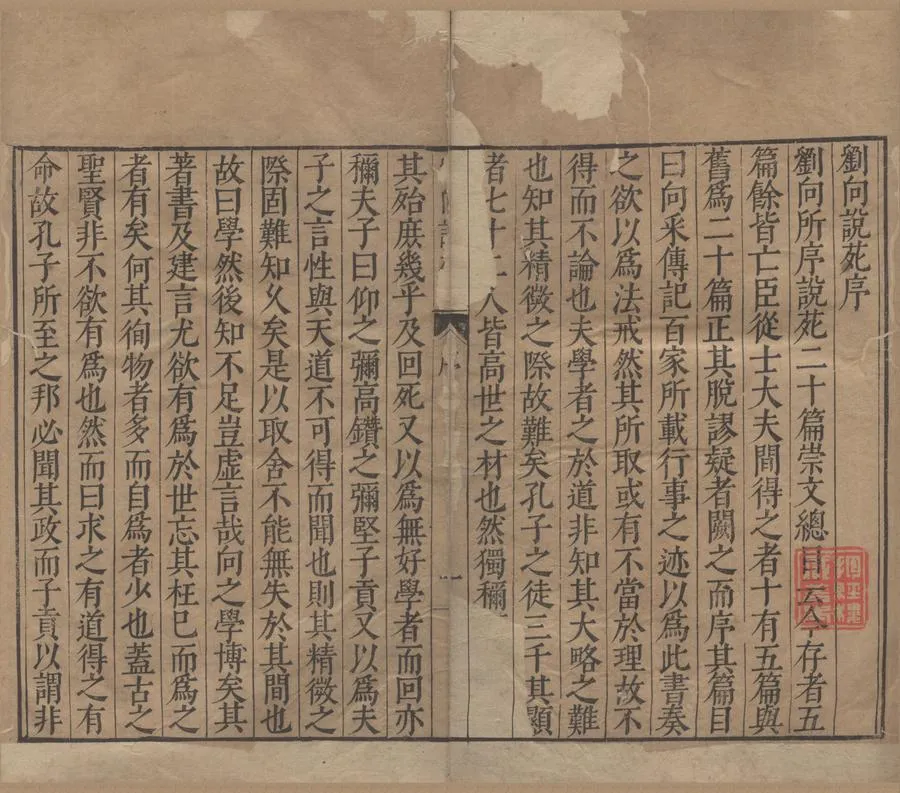 劉向說苑序
劉向所序說苑二十篇崇文總目云今存者五
篇餘皆亡臣從士大夫間得之者十有五篇與
舊爲二十篇正其脫謬疑者闕之而序其篇目
曰向采傳記百家所載行事之迹以爲此書奏
之欲以爲法戒然其所取或有不當於理故不
得而不論也夫學者之於道非知其大略之難
也知其精微之際故難矣孔子之徒三千其顯
者七十二人皆高世之材也然獨稱
序
一
其殆庶幾乎及回死又以爲無好學者而回亦
彌夫子曰仰之彌高鑽之彌堅子貢又以爲夫
子之言性與天道不可得而聞也則其精微之
際固難知乆矣是以取舍不能無失於其間也
故曰學然後知不足豈虛言哉向之學博矣其
著書及建言尤欲有爲於世忘其枉已而爲之
者有矣何其徇物者多而自爲者少也蓋古之
聖賢非不欲有爲也然而曰求之有道得之有
命故孔子所至之邦必聞其政而子貢以謂非